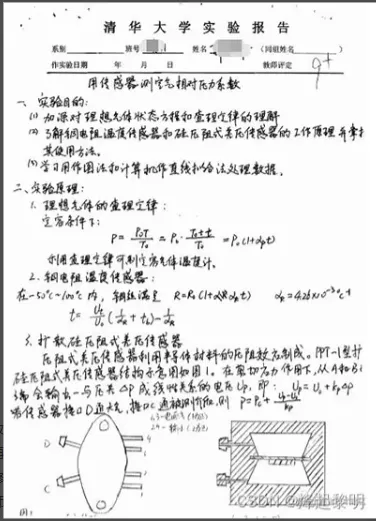 清华大学实验报告
系别 班号 姓名 (同组姓名 )
作实验日期 年 月 日 教师评定 9+
用传感器测空气相对压力系数
一、实验目的:
(1) 加深对理想气体状态方程和查理定律的理解
(2) 了解铜电阻温度传感器和硅压阻式差压传感器的工作原理并掌握
其使用方法。
(3) 学习用作图法和计算机作直线拟合法处理数据。
二、实验原理:
1. 理想气体的查理定律:
定容条件下:
P = P₀T/T₀ = P₀·(T₀+t)/T₀ = P₀(1+αpt)
利用查理定律可制定容气体温度计。
2. 铜电阻温度传感器:
在-50℃~100℃内, 铜电阻满足 R=R₀(1+αR t) αR=4.26×10⁻³℃⁻¹
3. 扩散硅压阻式差压传感器
压阻式差压传感器利用半导体材料的压阻效应制成。PPT-1型扩
硅压阻式差压传感器结构示意图如图1。在恒功力作用下,从A和B
端会输出一与压差ΔP成线性关系的电压Up, 即: Up=U₀+kpΔP
传感器接口D通大气, 接口C通被测气体, 则 P=P₀+(Up-U₀)/kp
D
C
CSDN @辉煌黎明